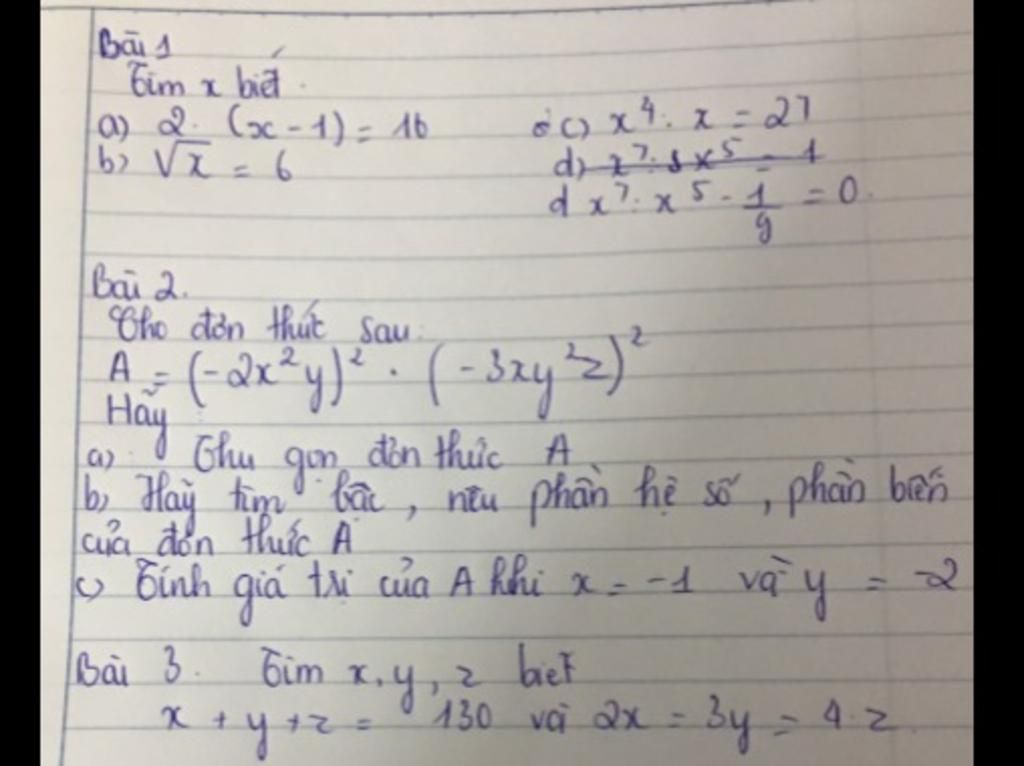 Bài 1
Tìm x biết.
a) 2. (x - 1) = 16
b) √x = 6
c) x⁴ : x = 27
d) x⁷ : x⁵ - 1
d x⁷ : x⁵ - 1/9 = 0.
Bài 2.
Cho đơn thức sau:
A = (-2x²y)² . (-3xy²z)²
Hãy
a) Thu gọn đơn thức A
b) Hãy tìm bậc, nêu phần hệ số, phần biến
của đơn thức A
c) Tính giá trị của A khi x = -1 và y = -2
Bài 3. Tìm x, y, z biết
x + y + z = 130 và 2x = 3y = 4.z